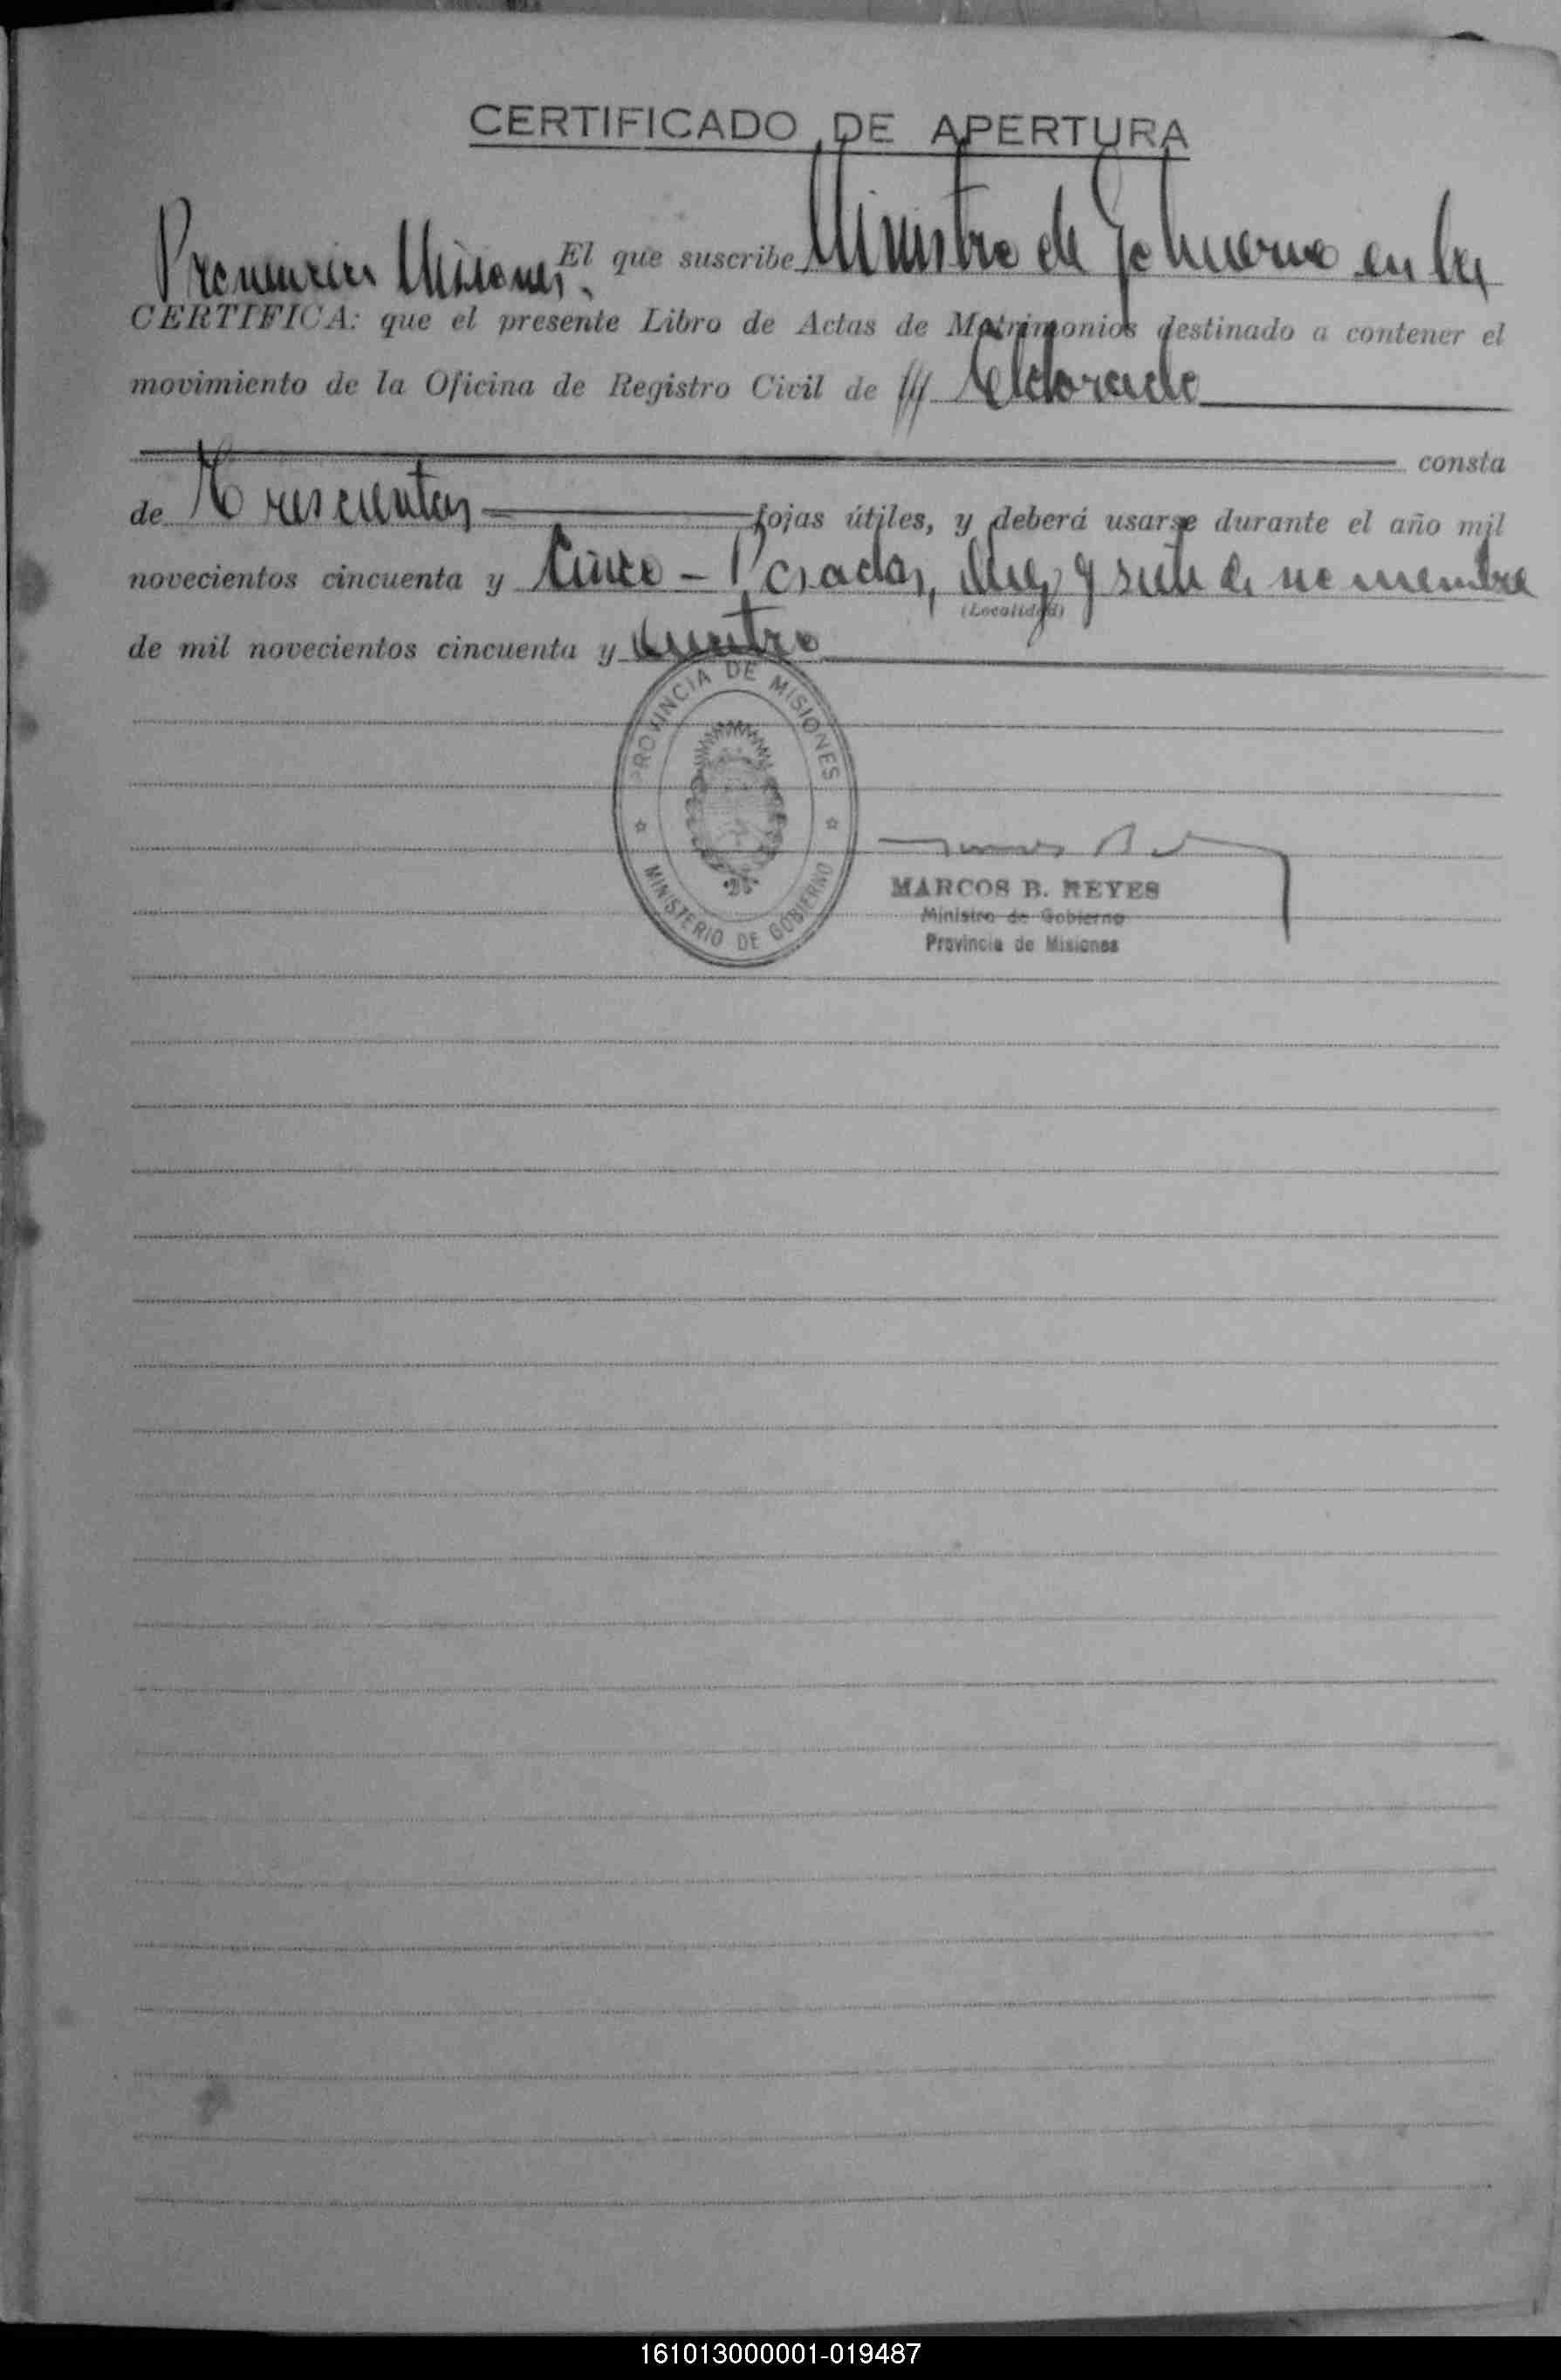 CERTIFICADO DE APERTURA
El que suscribe Ministro de Gobierno en la
Provincia Misiones.
CERTIFICA: que el presente Libro de Actas de Matrimonios destinado a contener el
movimiento de la Oficina de Registro Civil de Eldorado
consta
de Trescientas fojas útiles, y deberá usarse durante el año mil
novecientos cincuenta y Cinco - Posadas, diez y siete de noviembre
(Localidad)
de mil novecientos cincuenta y cuatro
PROVINCIA DE MISIONES
MINISTERIO DE GOBIERNO
MARCOS B. REYES
Ministro de Gobierno
Provincia de Misiones
161013000001-019487